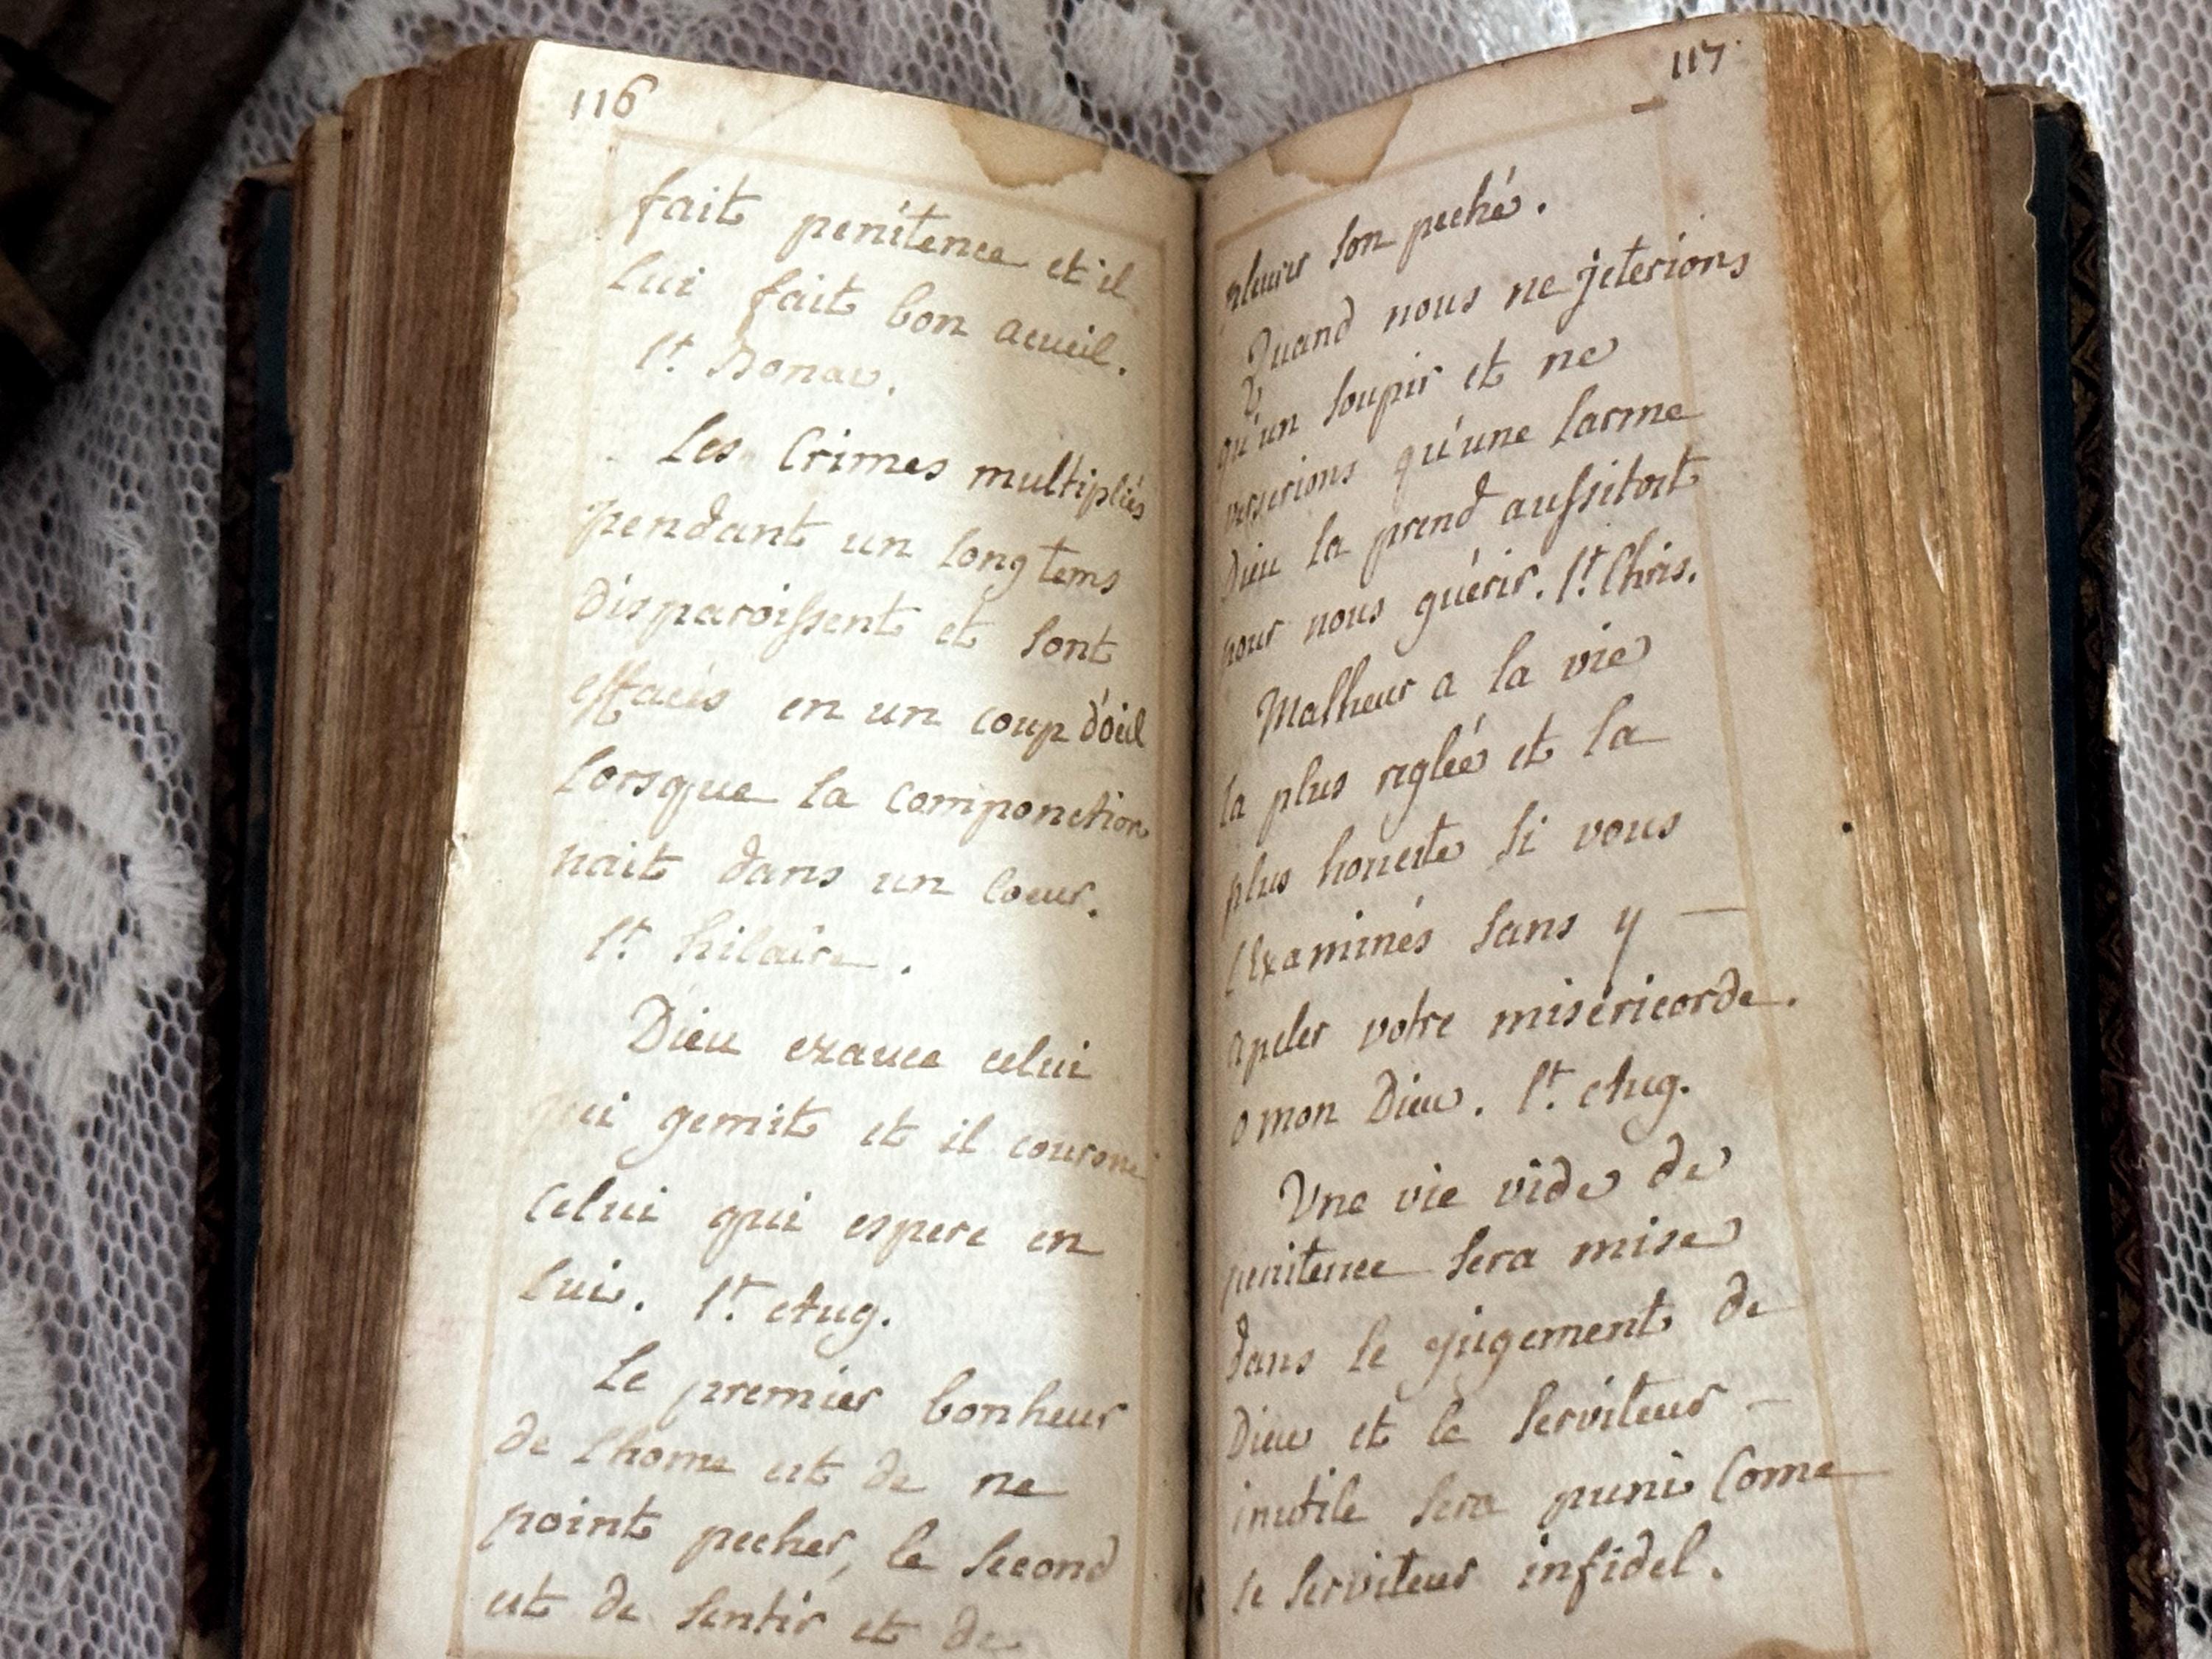 116
fait penitence et il
lui fait bon acueil.
St. Bonav.
Les Crimes multipliés
pendant un long tems
disparoissent et sont
effacés en un coup d'oeil
lorsque la componction
nait dans un coeur.
St. hilaire.
Dieu exauce celui
qui gemit et il courone
celui qui espere en
lui. St. Aug.
Le premier bonheur
de lhome est de ne
point pecher, le second
est de sentir et de
117
pleurer son peché.
Quand nous ne jeterions
qu'un soupir et ne
verserions qu'une larme
Dieu la prend aussitost
pour nous guérir. St. Chris.
Malheur a la vie
la plus reglée et la
plus honeste si vous
lexaminés sans y —
apeler votre miséricorde.
o mon Dieu. St. Aug.
Une vie vide de
penitence sera mise
dans le jugement de
Dieu et le serviteur —
inutile sera puni come
le serviteur infidel.